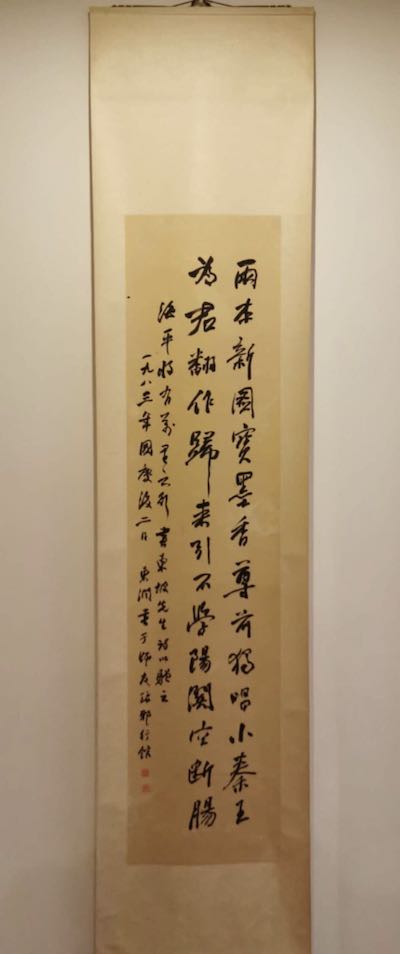 兩本新圖寶墨香尊前獨唱小秦王
為君翻作歸來引不學陽關空斷腸
海平將有萬里之行書東坡先生詩以贈之
一九八三年國慶後二日 東潤書于師友琅邪行館